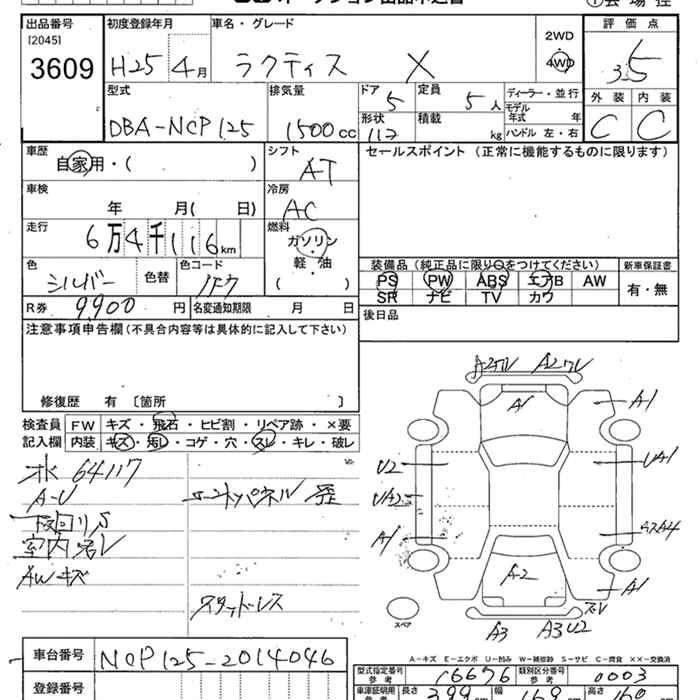 出品番号 初度登録年月 車名・グレード 2WD 評価点
[2045]
3609 H25年 4月 ラクティス X 4WD 3.5
型式 排気量 ドア 定員 ディーラー・並行 外装 内装
DBA-NCP125 1500cc 5 5人 モデル年式 年 C C
形状 積載 kg ハンドル 左・右
車歴 シフト セールスポイント (正常に機能するものに限ります)
自家用・( ) AT
車検 冷房
年 月( 日) AC
走行 燃料
6万4千116km ガソリン・軽・油
( )
色 色替 色コード 装備品 (純正品に限り○をつけてください) 新車保証書
シルバー 1F7 PS PW ABS エアB AW 有・無
SR ナビ TV カワ
R券 9900円 名変通知期限 月 日 後日品
注意事項申告欄(不具合内容等は具体的に記入して下さい)
修復歴 有 〔箇所 〕
検査員 FW キズ・飛石・ヒビ割・リペア跡・×要
記入欄 内装 キズ・汚レ・コゲ・穴・スレ・キレ・破レ
64117
A-U
下回りS
室内汚レ
AWキズ
スタッドレス
A2
A1 A1
U2 UA1
UA2
A1
A2
A1
A3 A3U2
スペア
A-キズ E-エクボ U-凹ミ W-補修跡 S-サビ C-腐食 ××-交換済
車台番号 NCP125-2014046 型式指定番号 参考 16676 類別区分番号 参考 0003
登録番号 車庫証明用 参考 長さ 399cm 幅 169cm 高さ 160cm